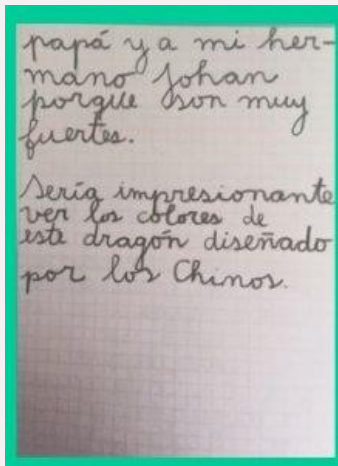 papá y a mi her-
mano Johan
porque son muy
fuertes.
Sería impresionante
ver los colores de
este dragón diseñado
por los Chinos.